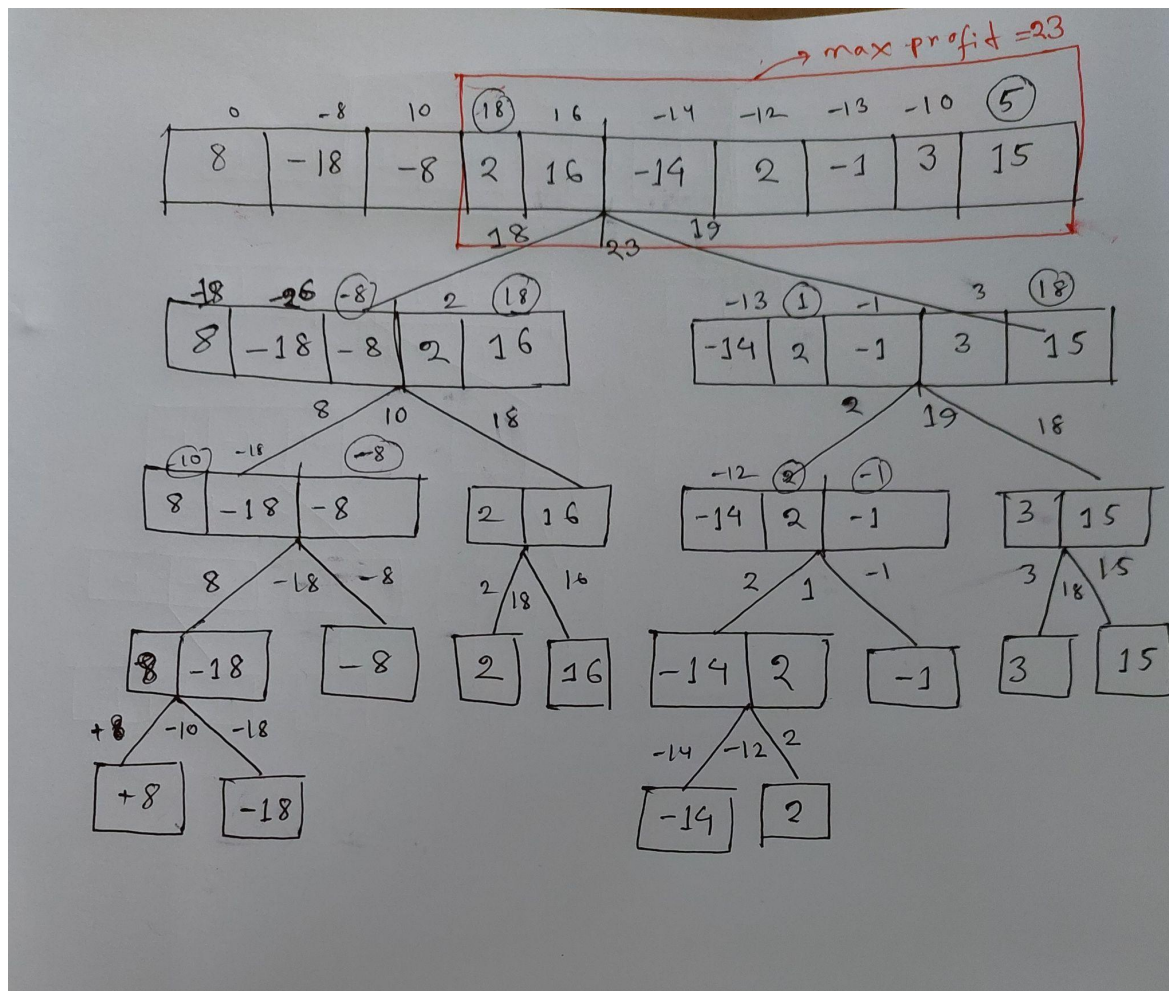 max profit = 23
0 -8 10 18 16 -14 -12 -13 -10 5
8 -18 -8 2 16 -14 2 -1 3 15
18 23 19
-18 -26 -8 2 18 -13 1 -1 3 18
8 -18 -8 2 16 -14 2 -1 3 15
8 10 18 2 19 18
-10 -18 -8 -12 2 -1
8 -18 -8 2 16 -14 2 -1 3 15
8 -18 -8 2 18 16 2 1 -1 3 18 15
8 -18 -8 2 16 -14 2 -1 3 15
+8 -10 -18 -14 -12 2
+8 -18 -14 2